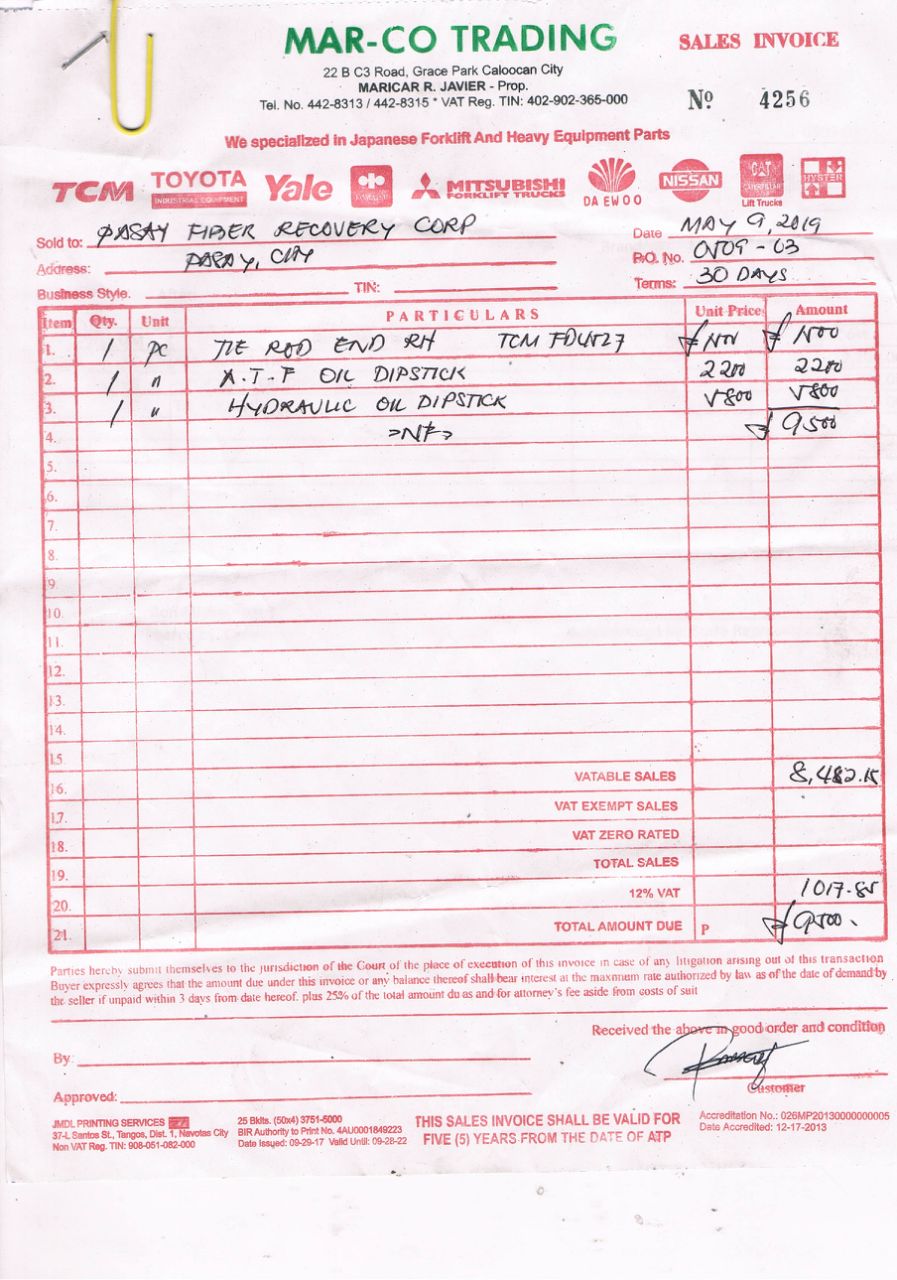 MAR-CO TRADING
SALES INVOICE
22 B C3 Road, Grace Park Caloocan City
MARICAR R. JAVIER - Prop.
Tel. No. 442-8313 / 442-8315 * VAT Reg. TIN: 402-902-365-000
Nº 4256
We specialized in Japanese Forklift And Heavy Equipment Parts
TCM TOYOTA INDUSTRIAL EQUIPMENT Yale KOMATSU MITSUBISHI FORKLIFT TRUCKS DAEWOO NISSAN CAT CATERPILLAR Lift Trucks HYSTER
Sold to: PASAY FIBER RECOVERY CORP Date MAY 9, 2019
Address: PASAY, CITY P.O. No. 0509-03
Business Style. TIN: Terms: 30 DAYS
Item Qty. Unit PARTICULARS Unit Price Amount
1. 1 pc TIE ROD END RH TCM
2. 1 " A.T.F OIL DIPSTICK 2200 2200
3. 1 " HYDRAULIC OIL DIPSTICK
4. 9500
5.
6.
7.
8.
9.
10.
11.
12.
13.
14.
15.
16. VATABLE SALES 8,482.15
17. VAT EXEMPT SALES
18. VAT ZERO RATED
19. TOTAL SALES
20. 12% VAT 1017.85
21. TOTAL AMOUNT DUE P 9500.
Parties hereby submit themselves to the jurisdiction of the Court of the place of execution of this invoice in case of any litigation arising out of this transaction
Buyer expressly agrees that the amount due under this invoice or any balance thereof shall bear interest at the maximum rate authorized by law as of the date of demand by
the seller if unpaid within 3 days from date hereof. plus 25% of the total amount du as and for attorney's fee aside from costs of suit
Received the above in good order and condition
By:
Customer
Approved:
JMDL PRINTING SERVICES
37-L Santos St., Tangos, Dist. 1, Navotas City
Non VAT Reg. TIN: 908-051-082-000
25 Bklts. (50x4) 3751-5000
BIR Authority to Print No. 4AU0001849223
Date Issued: 09-29-17 Valid Until: 09-28-22
THIS SALES INVOICE SHALL BE VALID FOR
FIVE (5) YEARS FROM THE DATE OF ATP
Accreditation No.: 026MP20130000000005
Date Accredited: 12-17-2013